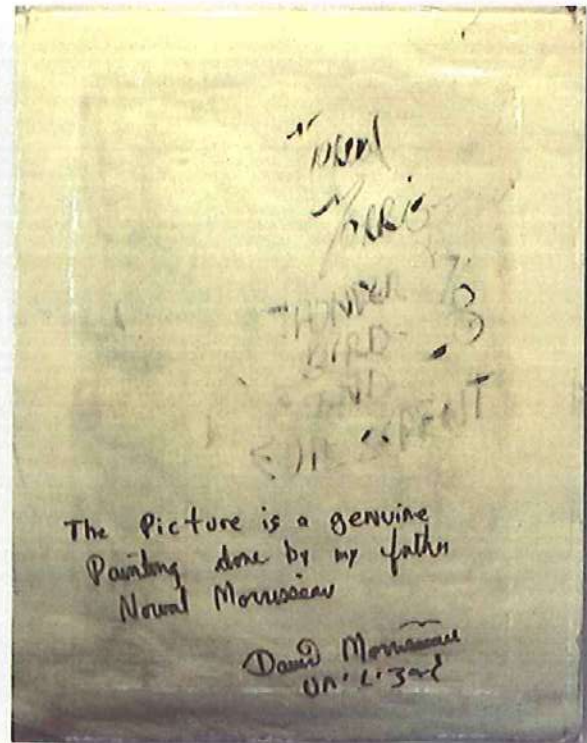 Norval
Morris
THUNDER 78
BIRD
AND
SERPENT
The Picture is a genuine
Painting done by my father
Norval Morrisseau
David Morrisseau